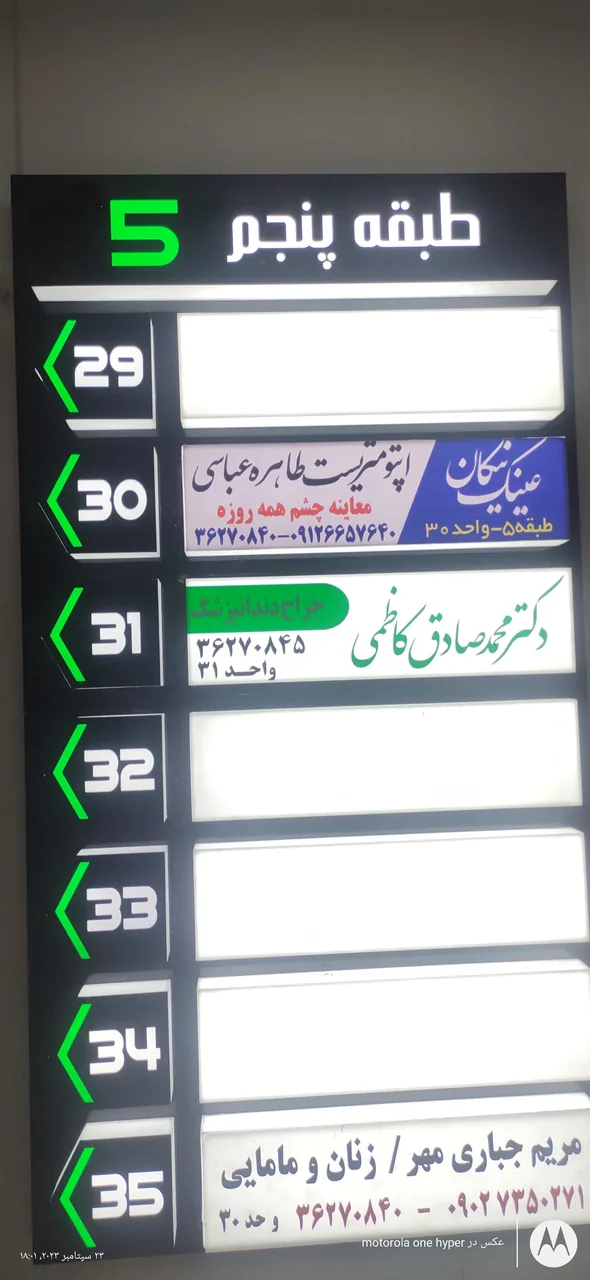 طبقه پنجم 5
29
30
عینک نیکان
طبقه۵-واحد۳۰
اپتومتریست طاهره عباسی
معاینه چشم همه روزه
۳۶۲۷۰۸۴۰-۰۹۱۲۶۶۵۷۶۴۰
31
دکتر محمدصادق کاظمی
جراح دندانپزشک
۳۶۲۷۰۸۴۵
واحد ۳۱
32
33
34
35
مریم جباری مهر / زنان و مامایی
۰۹۰۲۷۳۵۰۲۷۱ - ۳۶۲۷۰۸۴۰ و حد ۳۰
عکس در motorola one hyper
۲۳ سپتامبر ۲۰۲۳، ۱۸:۰۱